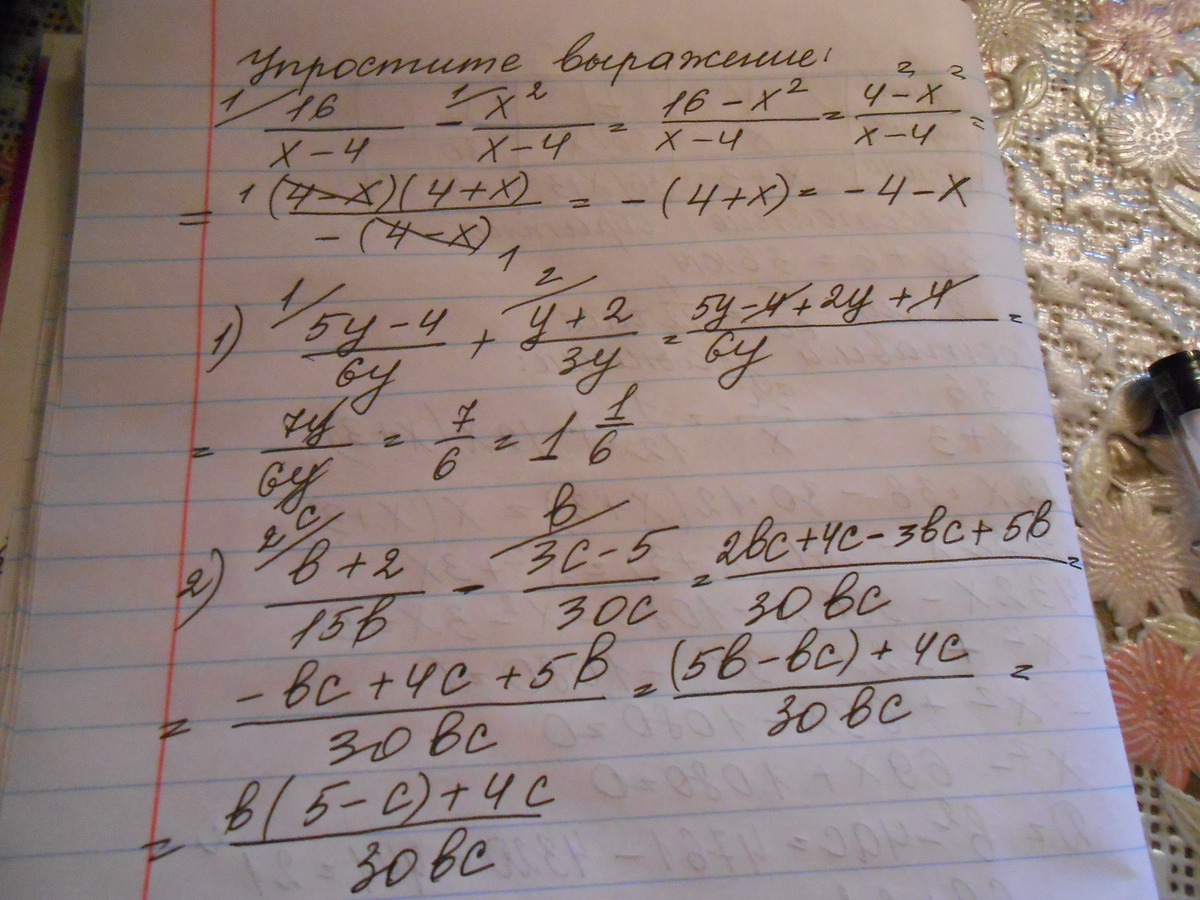 Упростите выражение:
1/ 16/(x-4) - 1/ x²/(x-4) = (16-x²)/(x-4) = (4²-x²)/(x-4) =
= 1 (4-x)(4+x)/(-(4-x)) 1 = -(4+x) = -4-x
1) 1/ (5y-4)/(6y) + 2/ (y+2)/(3y) = (5y-4+2y+4)/(6y) =
= 7y/(6y) = 7/6 = 1 1/6
2) 2c/ (в+2)/(15в) - в/ (3c-5)/(30c) = (2вc+4c-3вc+5в)/(30вc) =
= (-вc+4c+5в)/(30вc) = ((5в-вc)+4c)/(30вc) =
= (в(5-c)+4c)/(30вc)